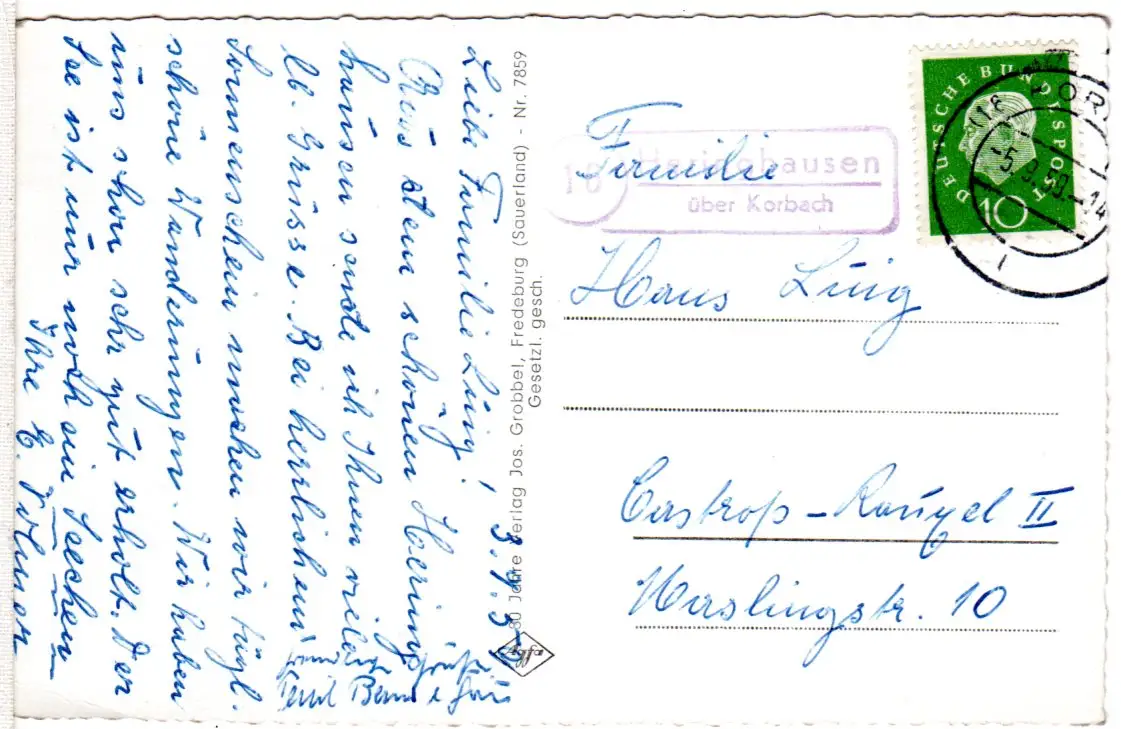 Liebe Familie Lüig!
3.9.59
Aus dem schönen Hering-
hausen sende ich Ihnen viele
lb. Grüsse. Bei herrlichem
Sonnenschein machen wir tägl.
schöne Wanderungen. Wir haben
uns schon sehr gut erholt. Der
See ist nur noch ein Seechen
Ihre E.
Grüße
80 Jahre Verlag Jos. Grobbel, Fredeburg (Sauerland) - Nr. 7859
Gesetzl. gesch.
Agfa
16
Heringhausen
über Korbach
DEUTSCHE BUNDESPOST
10
(16 KOR
-5.9.59.-14
Familie
Hans Lüig
Castrop-Rauxel II
Haslingstr. 10